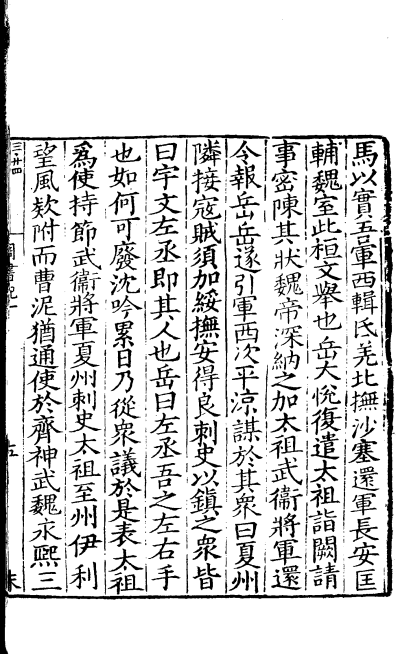 馬以實吾軍西輯氐羌北撫沙塞還軍長安匡
輔魏室此桓文舉也岳大悅復遣太祖詣闕請
事密陳其狀魏帝深納之加太祖武衞將軍還
令報岳岳遂引軍西次平涼謀於其衆曰夏州
隣接寇賊須加綏撫安得良刺史以鎮之衆皆
曰宇文左丞即其人也岳曰左丞吾之左右手
也如何可廢沈吟累日乃從衆議於是表太祖
爲使持節武衞將軍夏州刺史太祖至州伊利
望風欵附而曹泥猶通使於齊神武魏永熙三
三·廿四
五